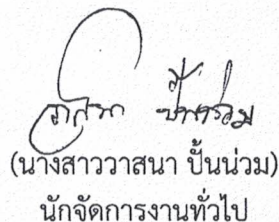 วาสนา ปั้นน่วม
(นางสาววาสนา ปั้นน่วม)
นักจัดการงานทั่วไป